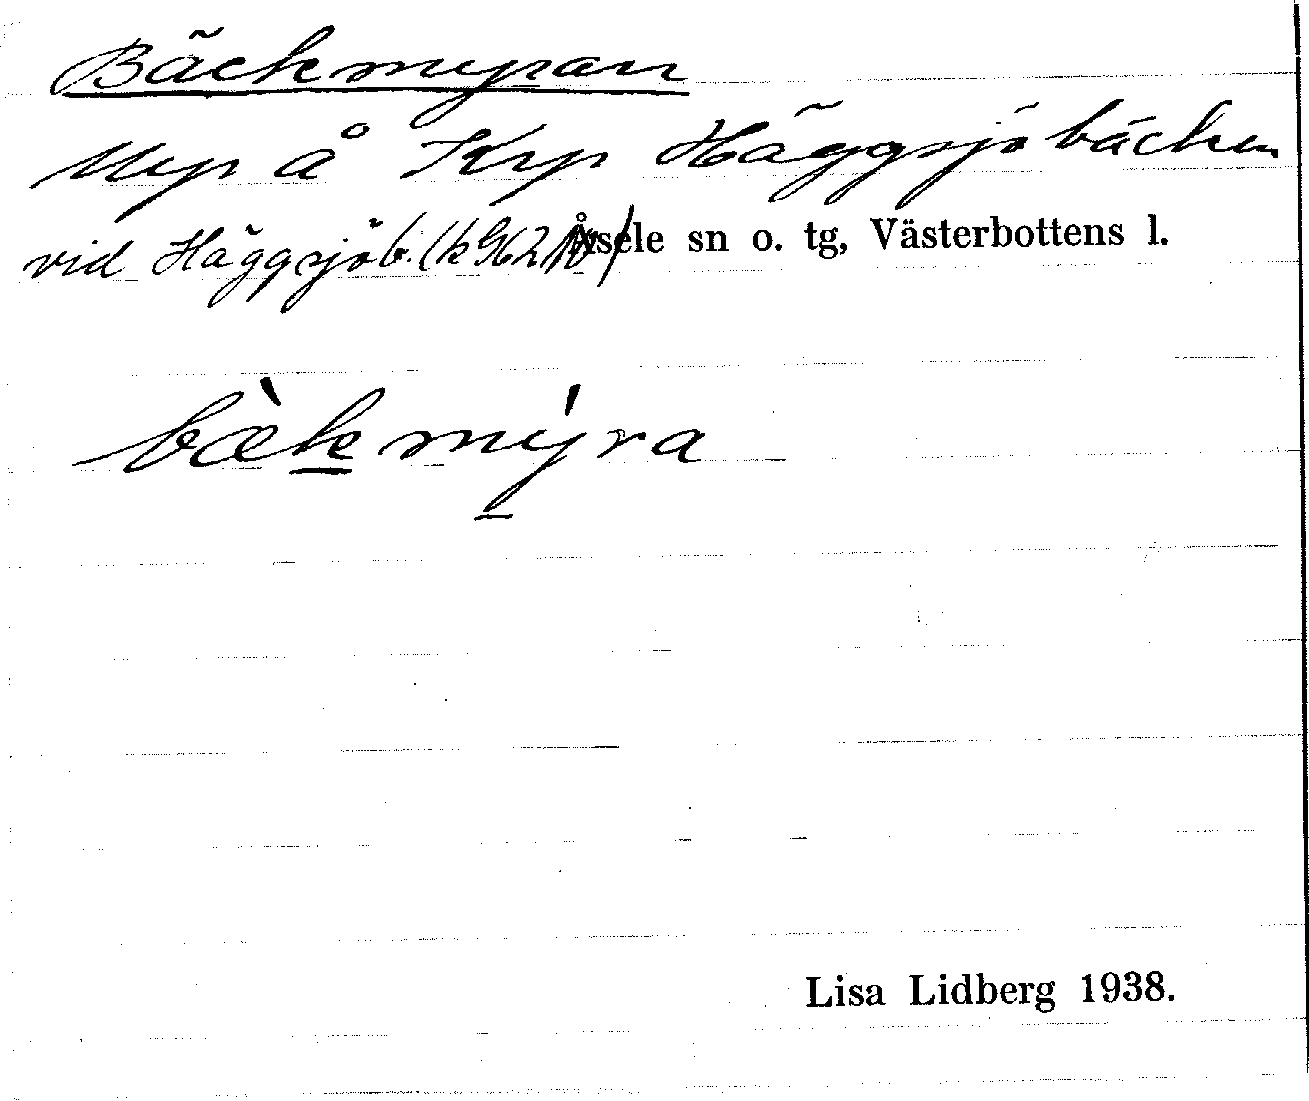 Bäckmyran
Myr å Krp Häggsjöbäcken
vid Häggsjöb. Åsele sn o. tg, Västerbottens l.
bæ̀kmýra
Lisa Lidberg 1938.